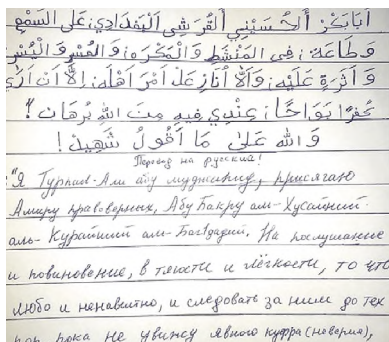 أَبَابَكْرْ أَلْحُسَيْنِي أَلْقُرَشِي أَلْبَغْدَادِي، عَلَى السَّمْعِ
وَطَاعَة، فِي المَنْشَطِ وَالْمَكْرَهِ، وَالْعُسْرِ وَالْيُسْرِ
وَ أَثَرَةٍ عَلَيْهِ، وَأَلاَّ أُنَازِعَ أَمْرَ أَهْلَهُ، إِلاَّ أَنْ أَرَى
كُفْرًا بَوَاحًا، عِنْدِي فِيهِ مِنَ اللهِ بُرْهَان!
وَ الله عَلَى مَا أَقُولُ شَهِيد!
Перевод на русский!
"Я Турпал-Али абу муджахид, присягаю
Амиру правоверных, Абу Бакру аль-Хусайний
аль-Курайший аль-Багдадий, На послушание
и повиновение, в тягости и лёгкости, то что
любо и ненавистно, и следовать за ним до тех
пор пока не увижу явного куфра (неверия),